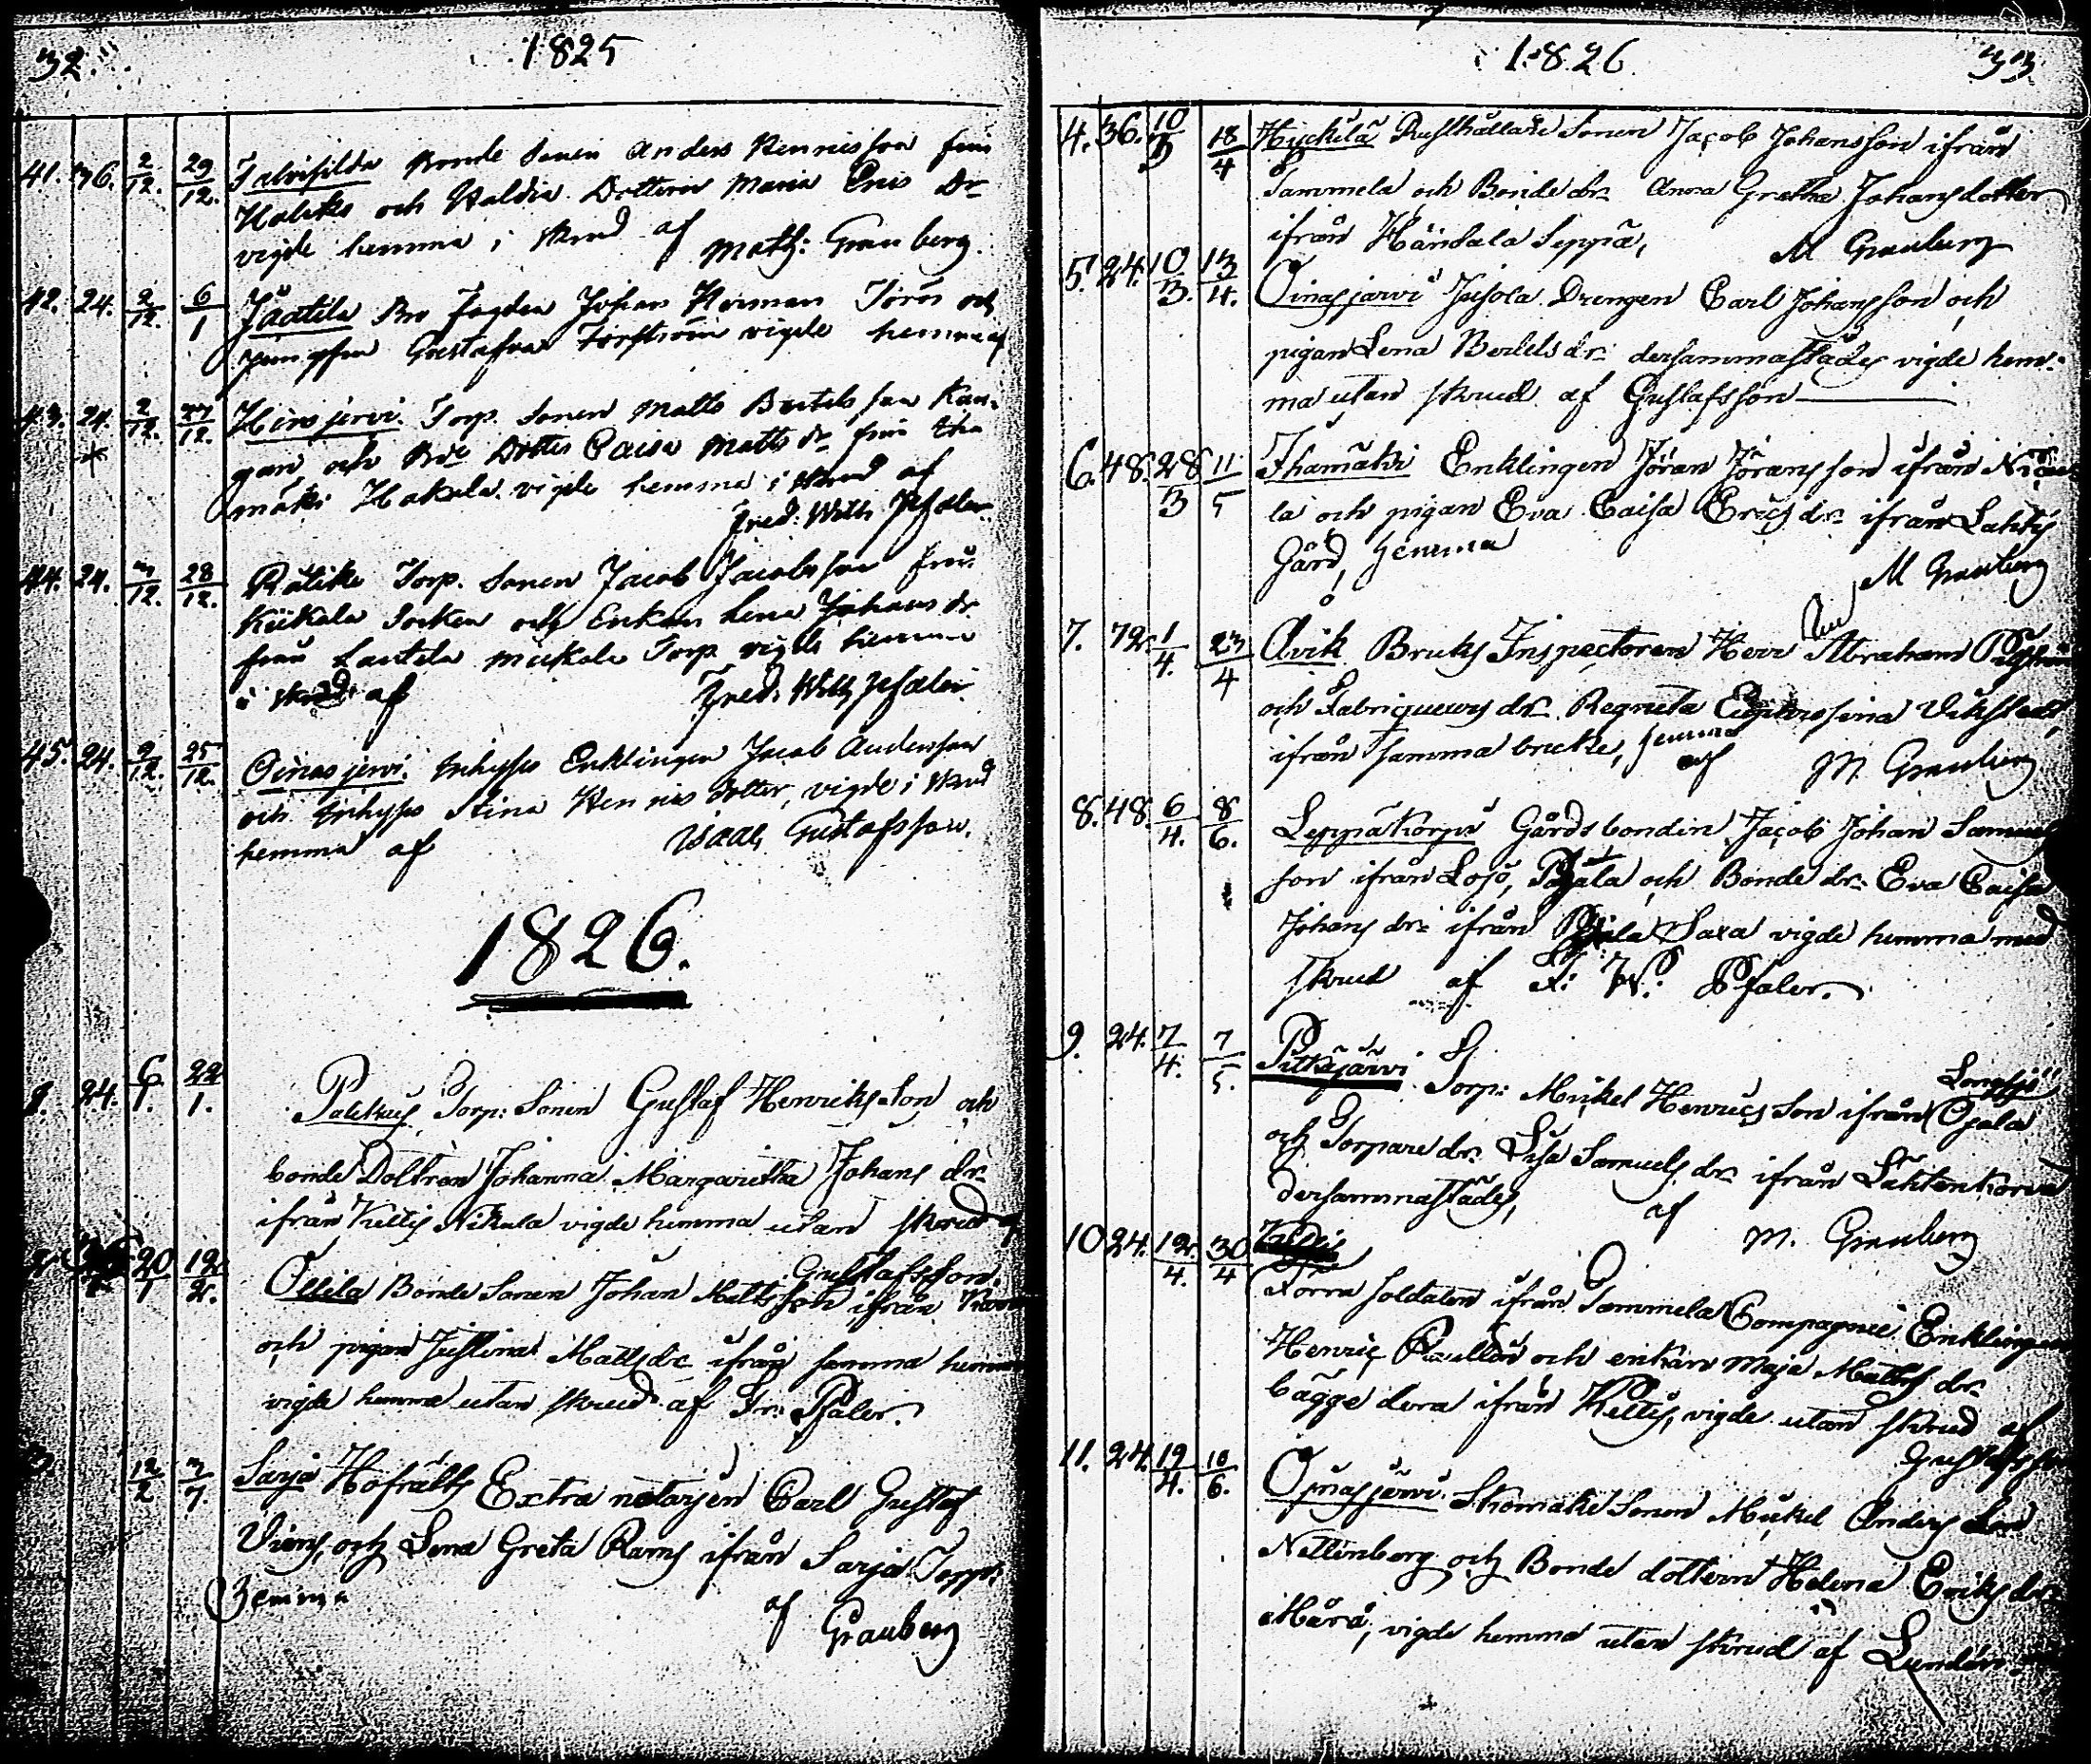 32.
1825
41. 36. 2/12. 29/12. Talvisilda Bonde Sonen Anders Hennisson från
och Valdia Dottern Maria Eris Dr
vigde hemma i skrud af Math: Granberg.
42. 24. 2/12. 6/1 Jäätila Johan Herman och
Gustafva vigde hemma af
43. 24. 2/12. 27/12. Hirsjervi. Torp. Sonen Matts Bertils son Kan-
gan, och Dotter Caisa Matts dr från Iha
mäki Hakala. vigde hemma i skrud af
Fred: Wilh Pfaler.
44. 24. 3/12. 28/12. Torp. Sonen Jacob Jacobsson från
Kiikala Socken och Enkan Lena Johans dr
från Lautela Mickola Torp vigde hemma
i skrud af Fred. Wilh Pfaler.
45. 24. 9/12. 25/12. Oinasjervi. Inhyses Enklingen Jacob Andersson
och Inhyses Stina Henrics dotter, vigde i skrud
hemma af Isaac Gustafsson.
1826.
1. 24. 6/1. 22/1. Torp: Sonen Gustaf Henriks Son och
bonde Dottren Johanna Margaretha Johans dr.
ifrån Kettis Nikula vigde hemma utan skrud af
Gustafsson.
20/1 12/2. Ollila Bonde Sonen Johan Mattsson ifrån
och pigan Justina Mattsdr ifrån samma hemman
vigde hemma utan skrud af Fr: Pfaler.
3. 12/2 3/7. Sarja Hofrätts Extra notarien Carl Gustaf
och Lena Greta Rams ifrån Sarja
hemma af Granberg
1826.
33.
4. 36. 10/3 18/4 Hyckilä Rusthållare Sonen Jacob Johansson ifrån
Sammela och Bonde dr. Anna Gretha Johansdotter
ifrån Hänsala Seppä, M Granberg
5. 24. 10/3. 13/4. Oinasjarvi Jusola Drengen Carl Johansson och
pigan Lena Bertels dr. dersammastädes vigde hem-
ma utan skrud af Gustafsson
6. 48. 28/3 11/5 Ihamäki Enklingen Jöran Jöransson ifrån
la och pigan Eva Caisa Erics dr. ifrån Lahtis
Gård, hemma
M Granberg
7. 72. 1/4. 23/4 Åvik Bruks Inspectoren Herr Abraham
och Fabriqueurs dr. Regneta
ifrån samma bruk, hemma
af M. Granberg
8. 48. 6/4. 8/6. Leppäkorpi Gårdsbonden Jacob Johan Samuels
son ifrån Lojo, Pajala och Bonde dr. Eva Caisa
Johans dr. ifrån Saxa vigde hemma med
skrud af F. W. Pfaler.
9. 24. 7/4. 7/5. Pitkäjärvi Torp: Mickel Henrics Son ifrån Långsjö
Ojala
och Torpare dr. Lisa Samuels dr. ifrån Lähtenkorva
dersammastädes, af M. Granberg
10 24. 12/4. 30/4
Förra soldaten ifrån Tammela Compagnie Enklingen
Henric och enkan Maja Matts dr.
bägge dera ifrån Kettis, vigde utan skrud af
Gustafsson
11. 24. 19/4. 18/6. Oinasjärvi Skomakar Sonen Mickel Anders Son
Nettenberg och Bonde dottern Helena Eriks dr.
Härä, vigde hemma utan skrud af Lundén.